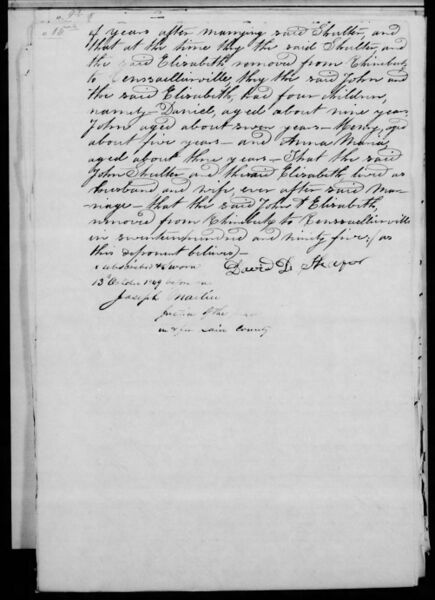 of years after marrying said Shutter, and
that at the time they the said Shutter, and
the said Elizabeth removed from
to Renssaellirville, they the said John and
the said Elizabeth, had four children,
namely - Daniel, aged about nine years
John aged about seven years - Henry, aged
about five years - and Anna Maria
aged about three years - That the said
John Shutter and the said Elizabeth, lived as
husband and wife, ever after said Mar-
riage - that the said John & Elizabeth,
removed from to Renssaellirville
in seventeen hundred and ninety five, (as
this deponent believes) -
Subscribed & sworn
David D.
13th October 1849
Joseph
Justice of the
in & for said County